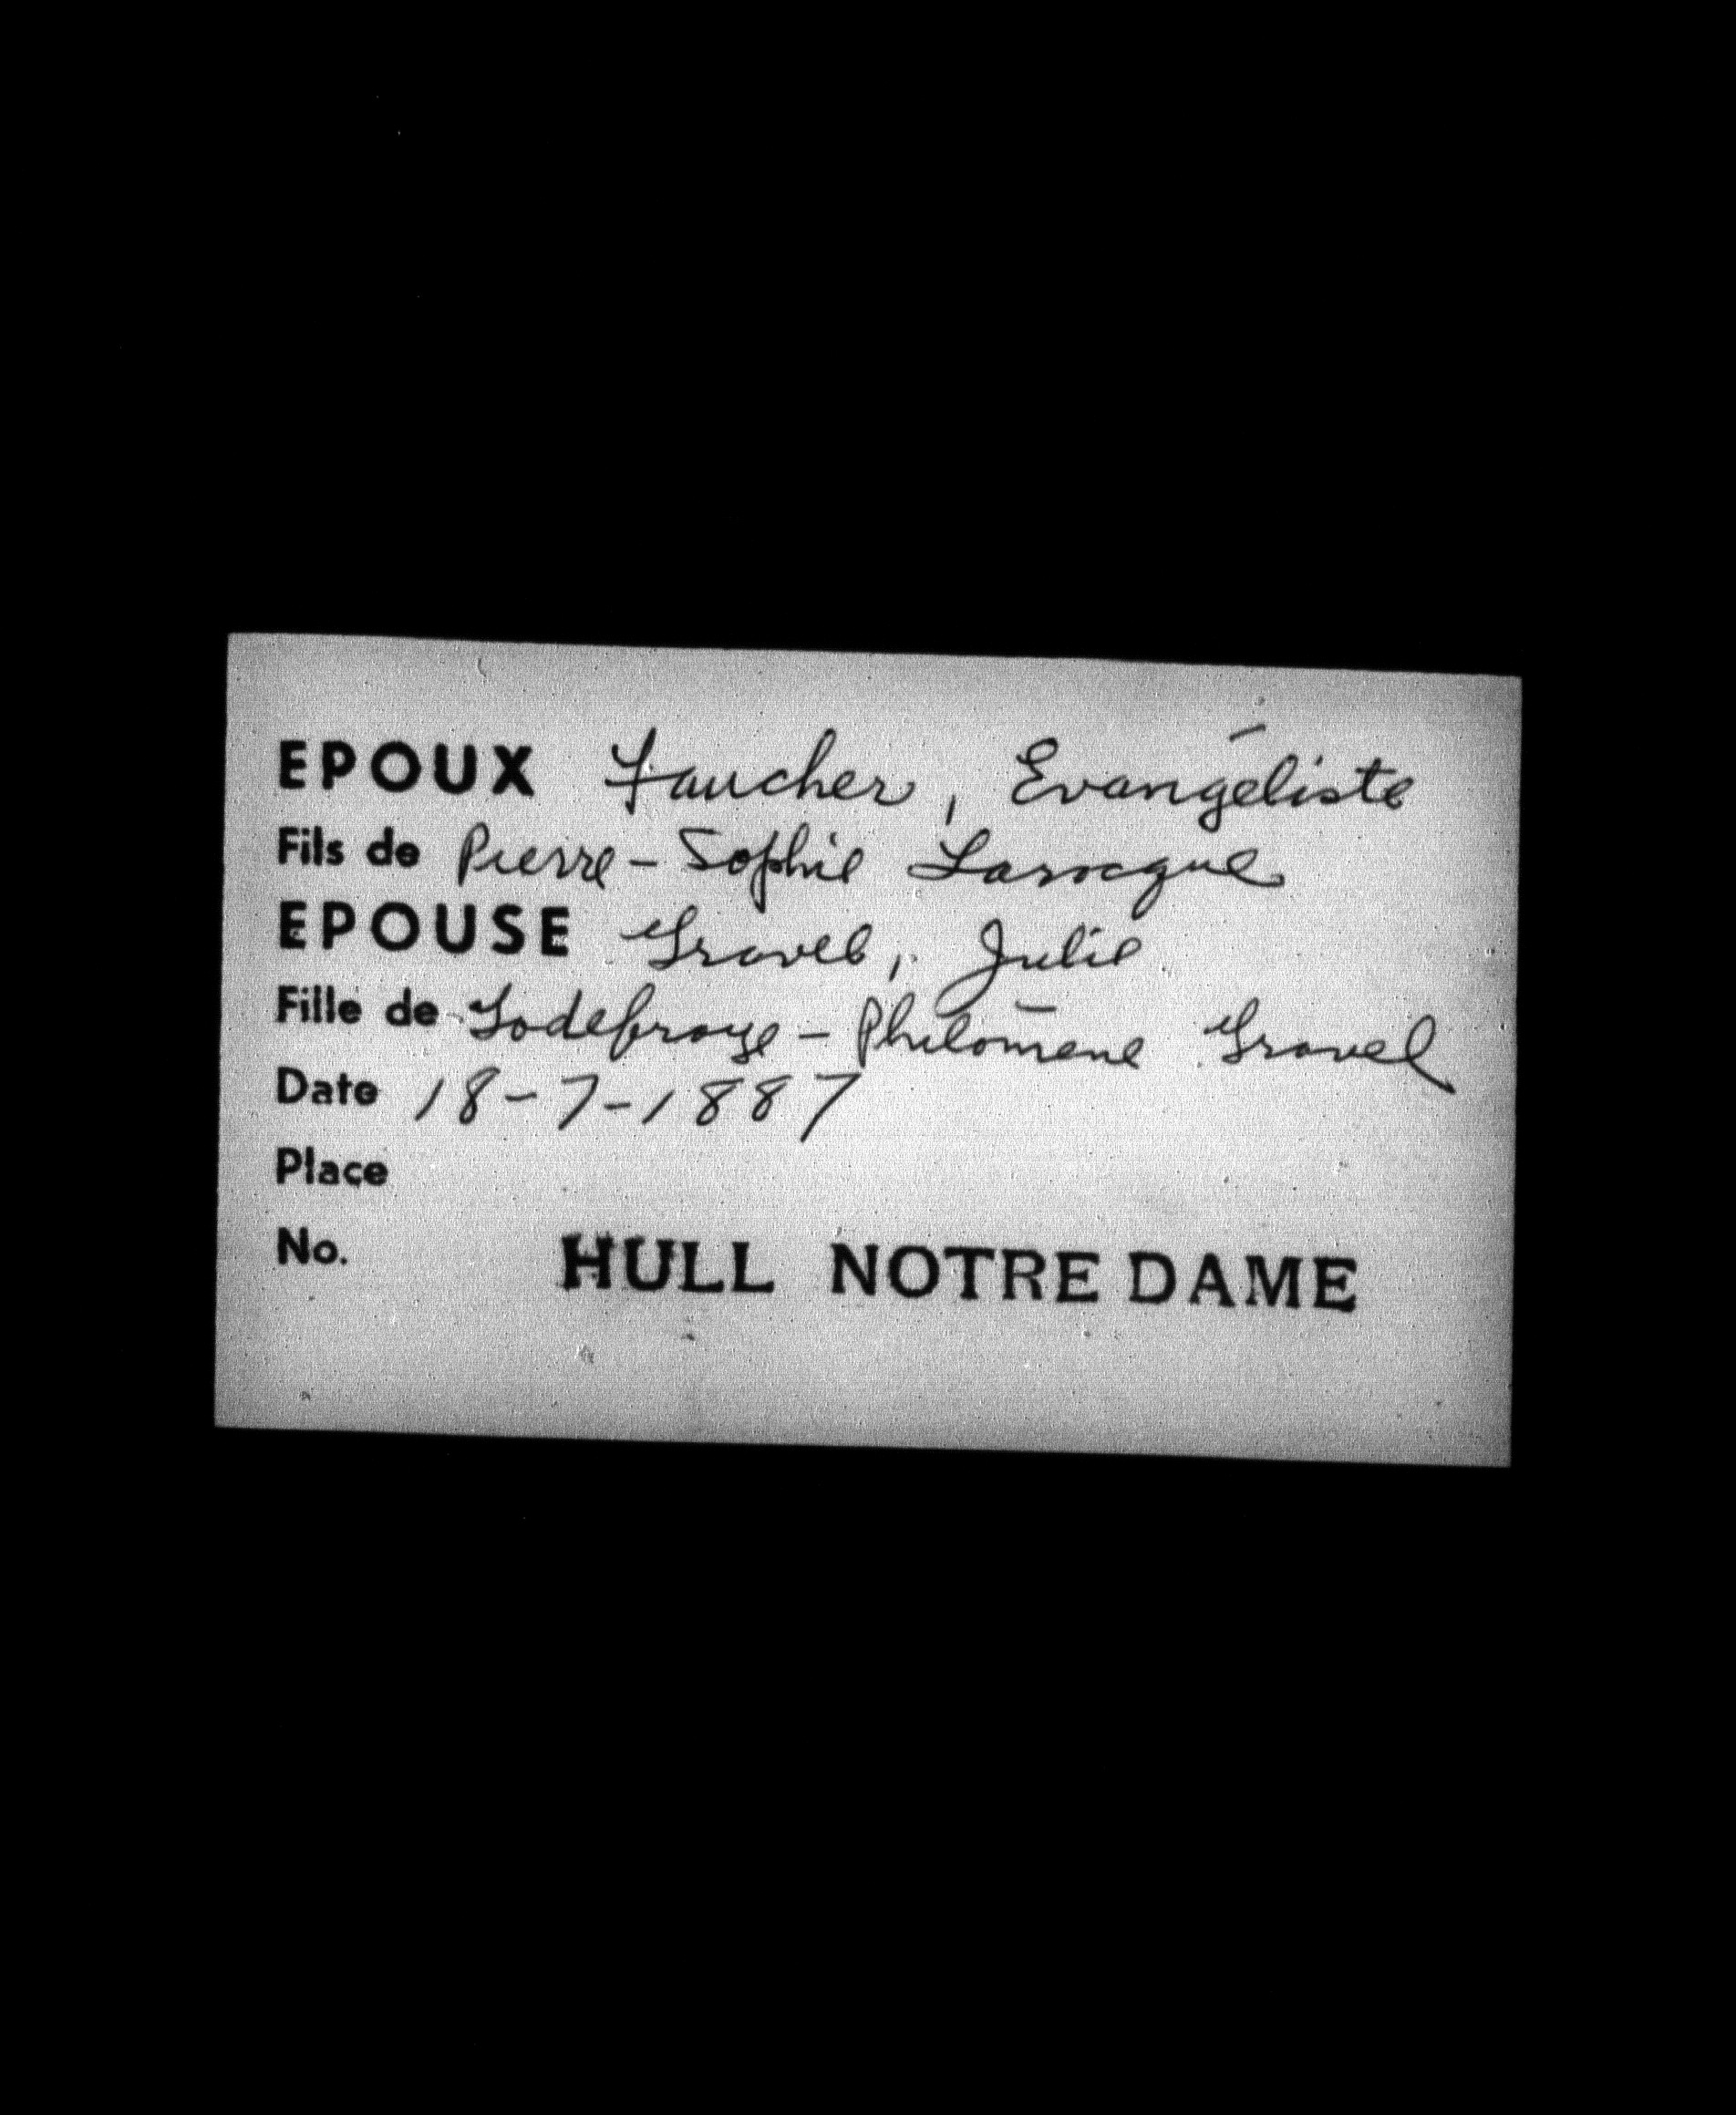 EPOUX Faucher, Evangéliste
Fils de Pierre - Sophie Larocque
EPOUSE Gravel, Julie
Fille de Godefroye - Philomène Gravel
Date 18-7-1887
Place
No. HULL NOTRE DAME